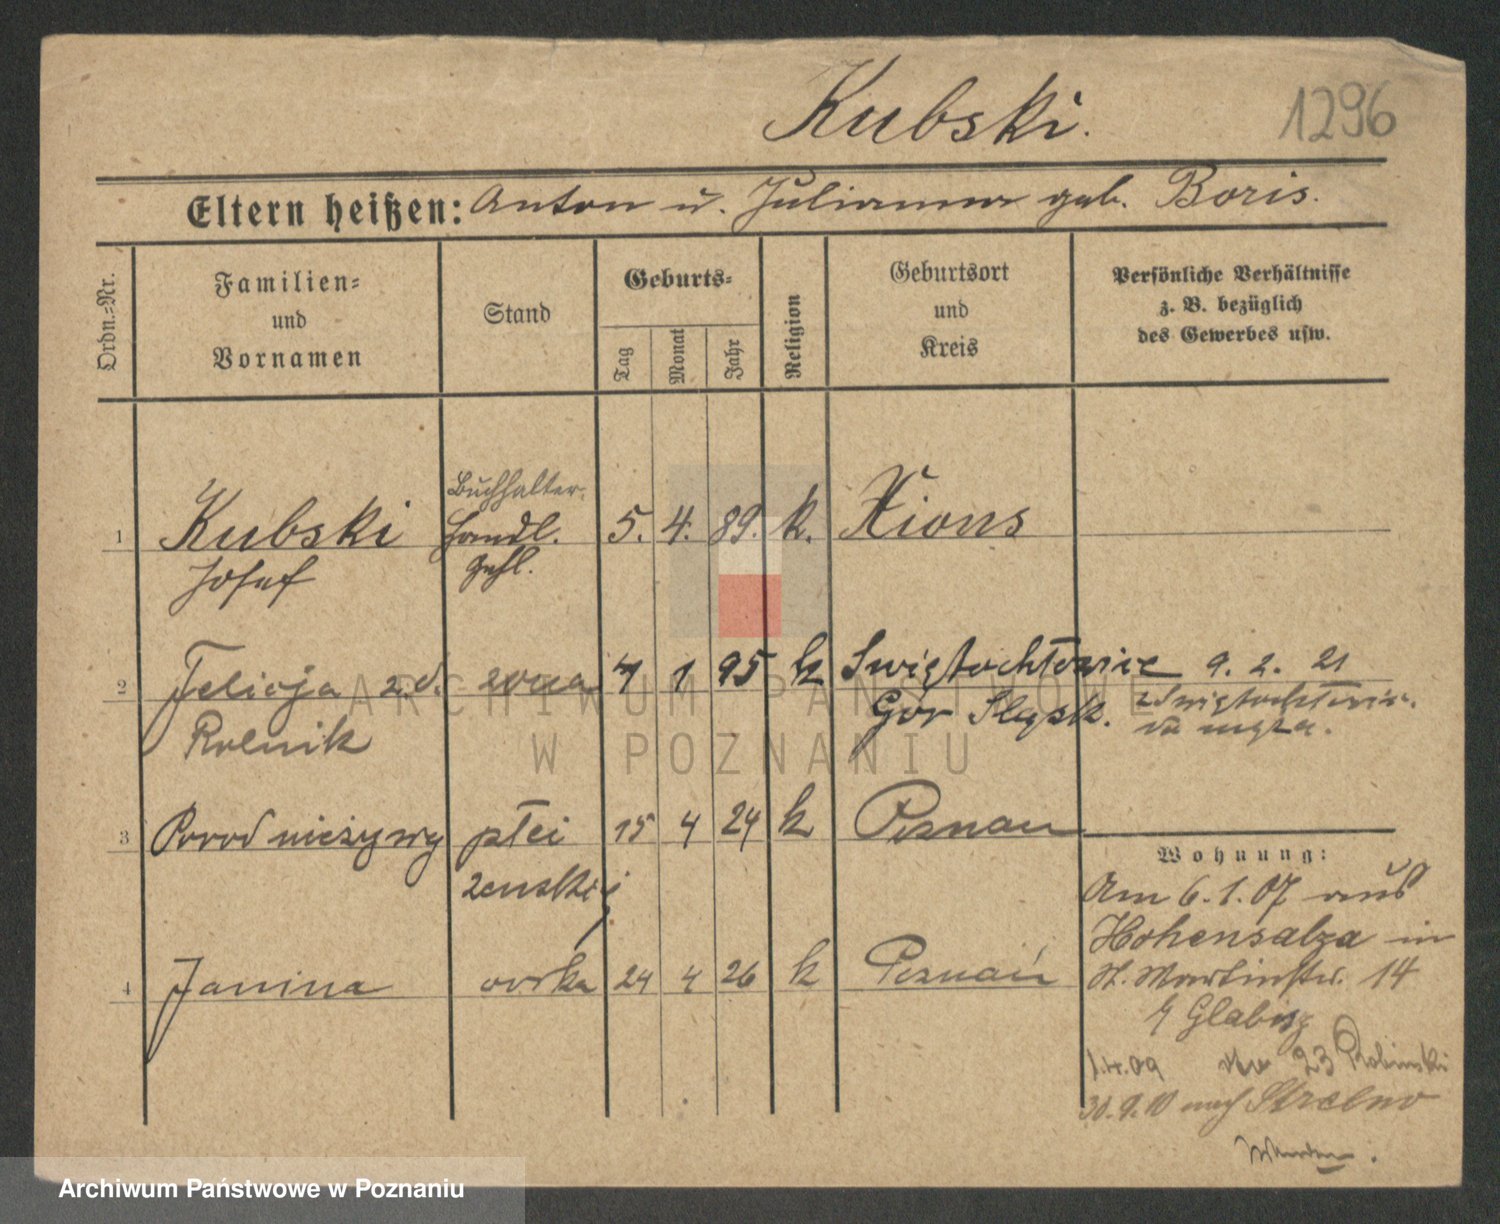 Kubski.
1296
Eltern heißen: Anton u. Julianna geb. Boris.
Ordn.=Nr.
Familien=
und
Vornamen
Stand
Geburts=
Tag
Monat
Jahr
Religion
Geburtsort
und
Kreis
Persönliche Verhältnisse
z. B. bezüglich
des Gewerbes usw.
Buchhalter
1 Kubski handl. 5. 4. 89. k. Xions
Josef Gehl.
2 Felicja z.d. żona 7 1 95 k Świętochłowic 9. 2. 21
Rolnik Gór Sląsk. z Świętochłowic.
do męża.
3 Poród nieżywy płci 15 4 24 k Poznań
żenskiej
4 Janina córka 24 4 26 k Poznań
Wohnung:
Am 6.1.07 aus
Hohensalza in
St. Martinstr. 14
b/ Glabisz
1.4.09 23 Robinski
30.9.10 nach Strelno
ARCHIWUM PAŃSTWOWE
W POZNANIU
Archiwum Państwowe w Poznaniu